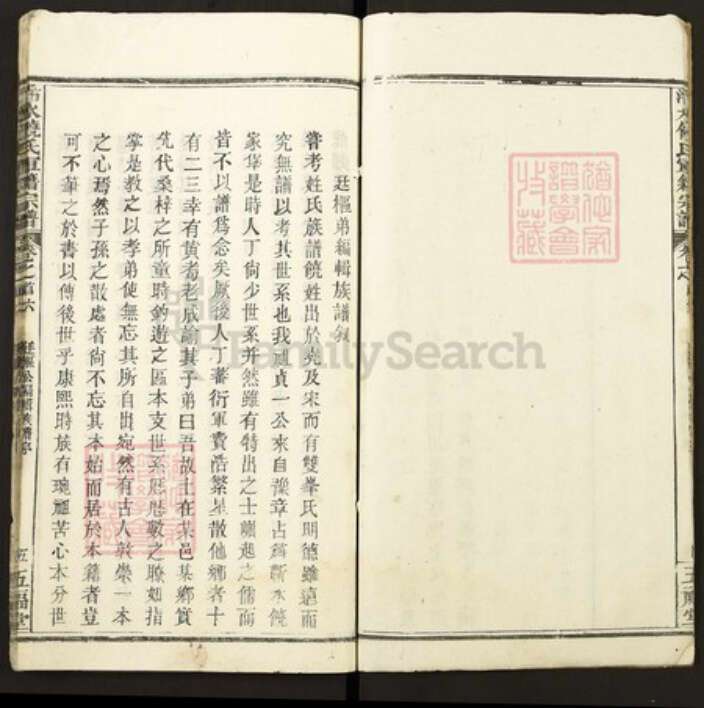 廷樞弟編輯族譜敘
嘗考姓氏族譜饒姓出於堯及宋而有雙峯氏明德雖遠而
究無譜以考其世系也我通貞一公來自豫章占籍蘄水饒
家筆是時人丁尙少世系井然雖有特出之士崛起之儒而
皆不以譜爲念矣厥後人丁蕃衍軍費浩繁星散他鄉者十
有二三幸有黃耇老成諭其子弟曰吾故土在某邑某鄉實
先代桑梓之所童時釣遊之區本支世系歷歷數之瞭如指
掌是教之以孝弟使無忘其所自出宛然有古人敦崇一本
之心焉然子孫之散處者尙不忘其本始而居於本籍者豈
可不筆之於書以傳後世乎康熙時族有琬麗苦心本分世
水饒氏軍籍宗譜
卷之首六
五福堂
五福堂
FamilySearch